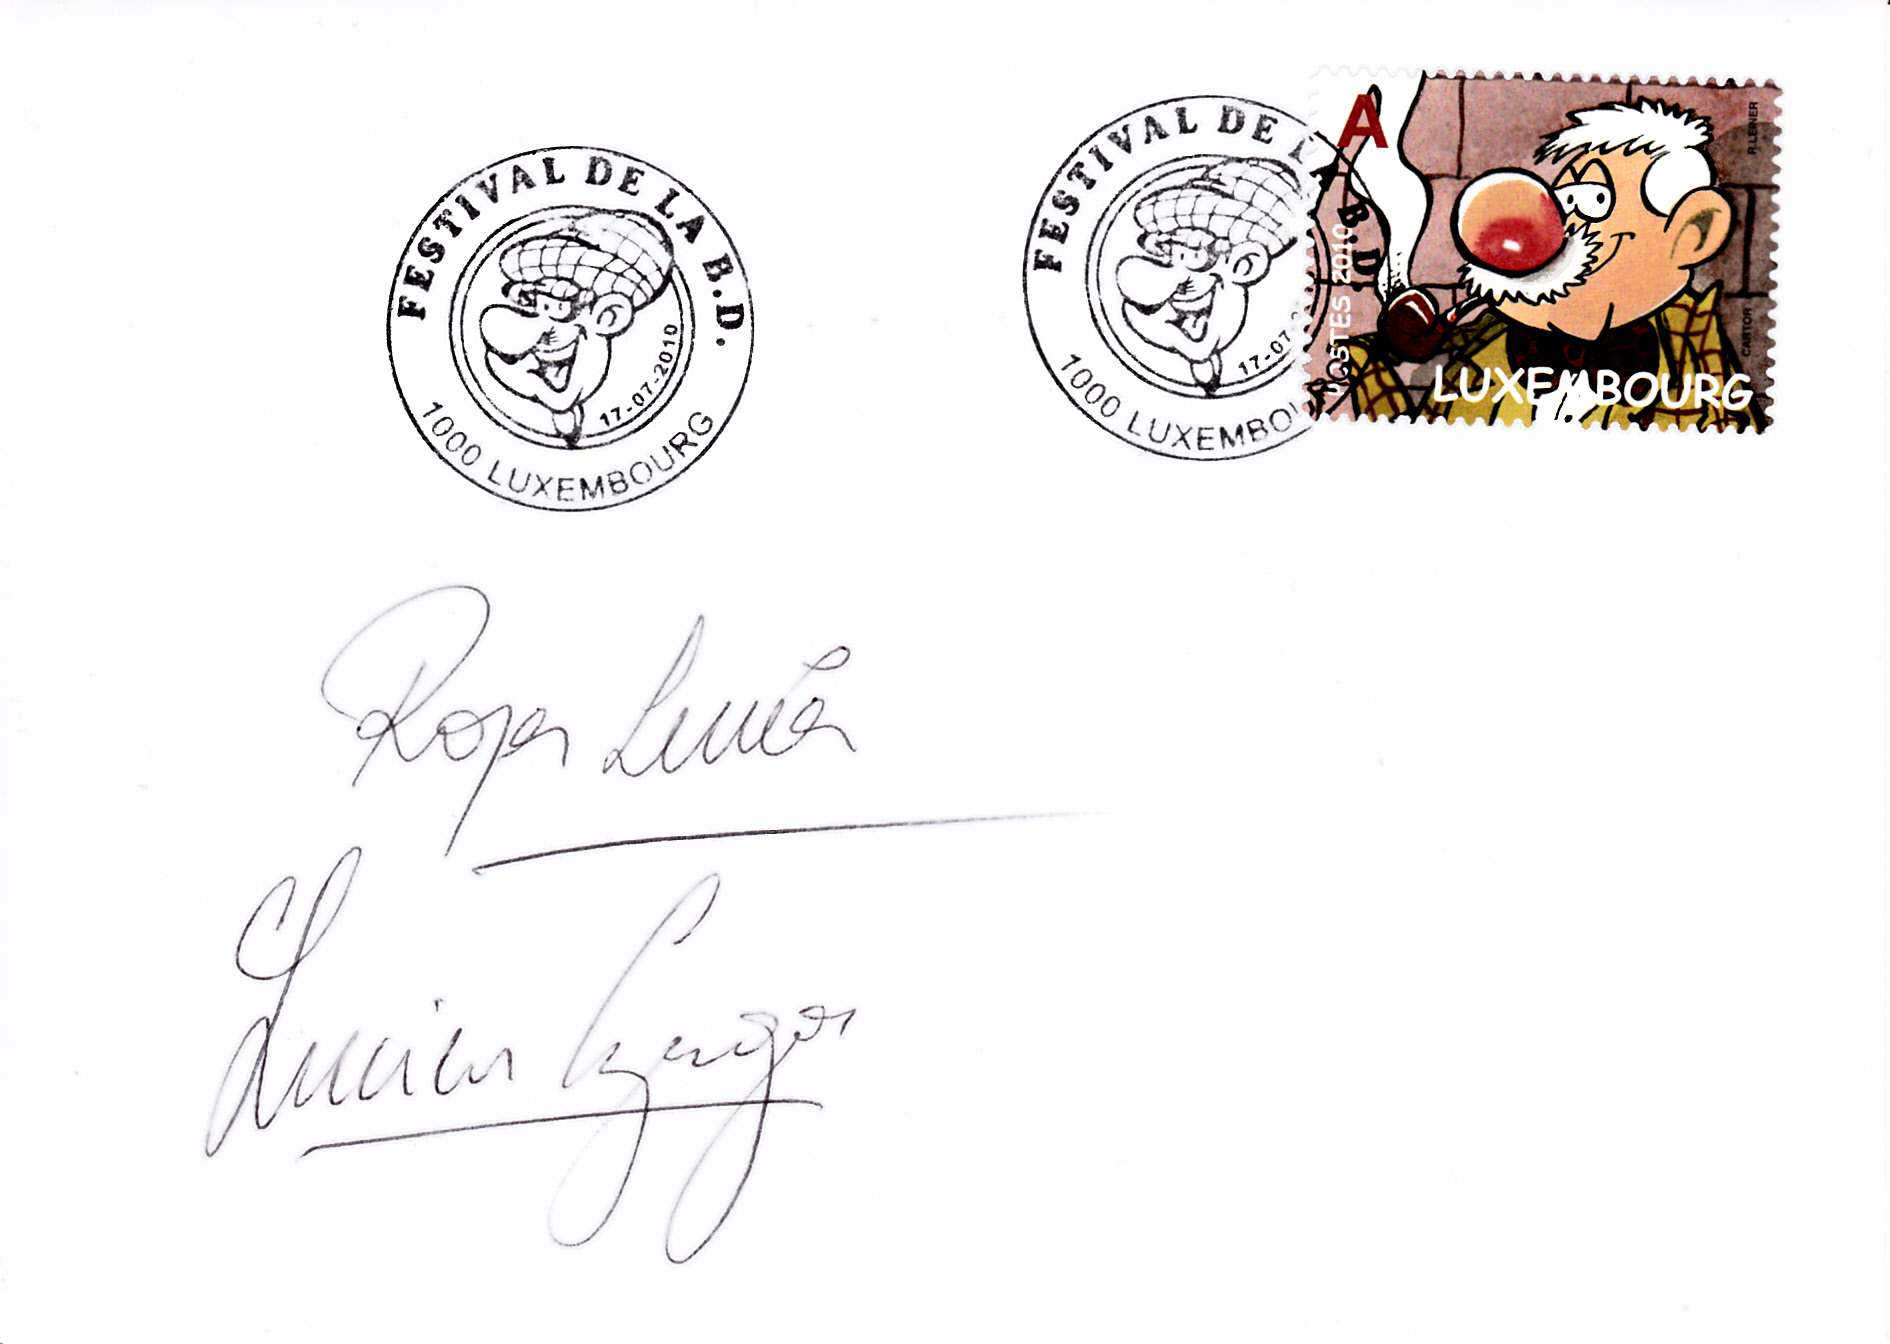 FESTIVAL DE LA B.D.
17-07-2010
1000 LUXEMBOURG
FESTIVAL DE LA B.D.
17-07-2
1000 LUXEMBOU
A
R.LEINER
POSTES 2010
CARTOR
LUXEMBOURG
Roger Leiner
Lucien Czuga